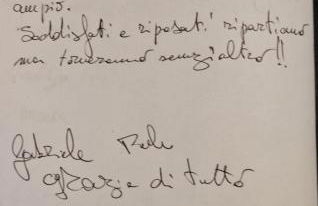 ampio.
Soddisfati e riposati ripartiamo
ma torneremo senz'altro!!
Gabriele
Grazie di tutto